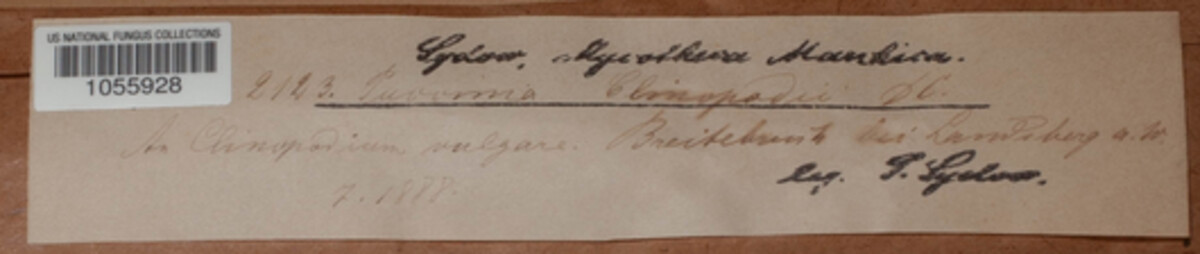 US NATIONAL FUNGUS COLLECTIONS
1055928
Sydow, Mycotheca Marchica.
2123. Puccinia Clinopodii DC.
An Clinopodium vulgare. Breitebruch bei Landsberg a. W.
7. 1888.
leg. P. Sydow.